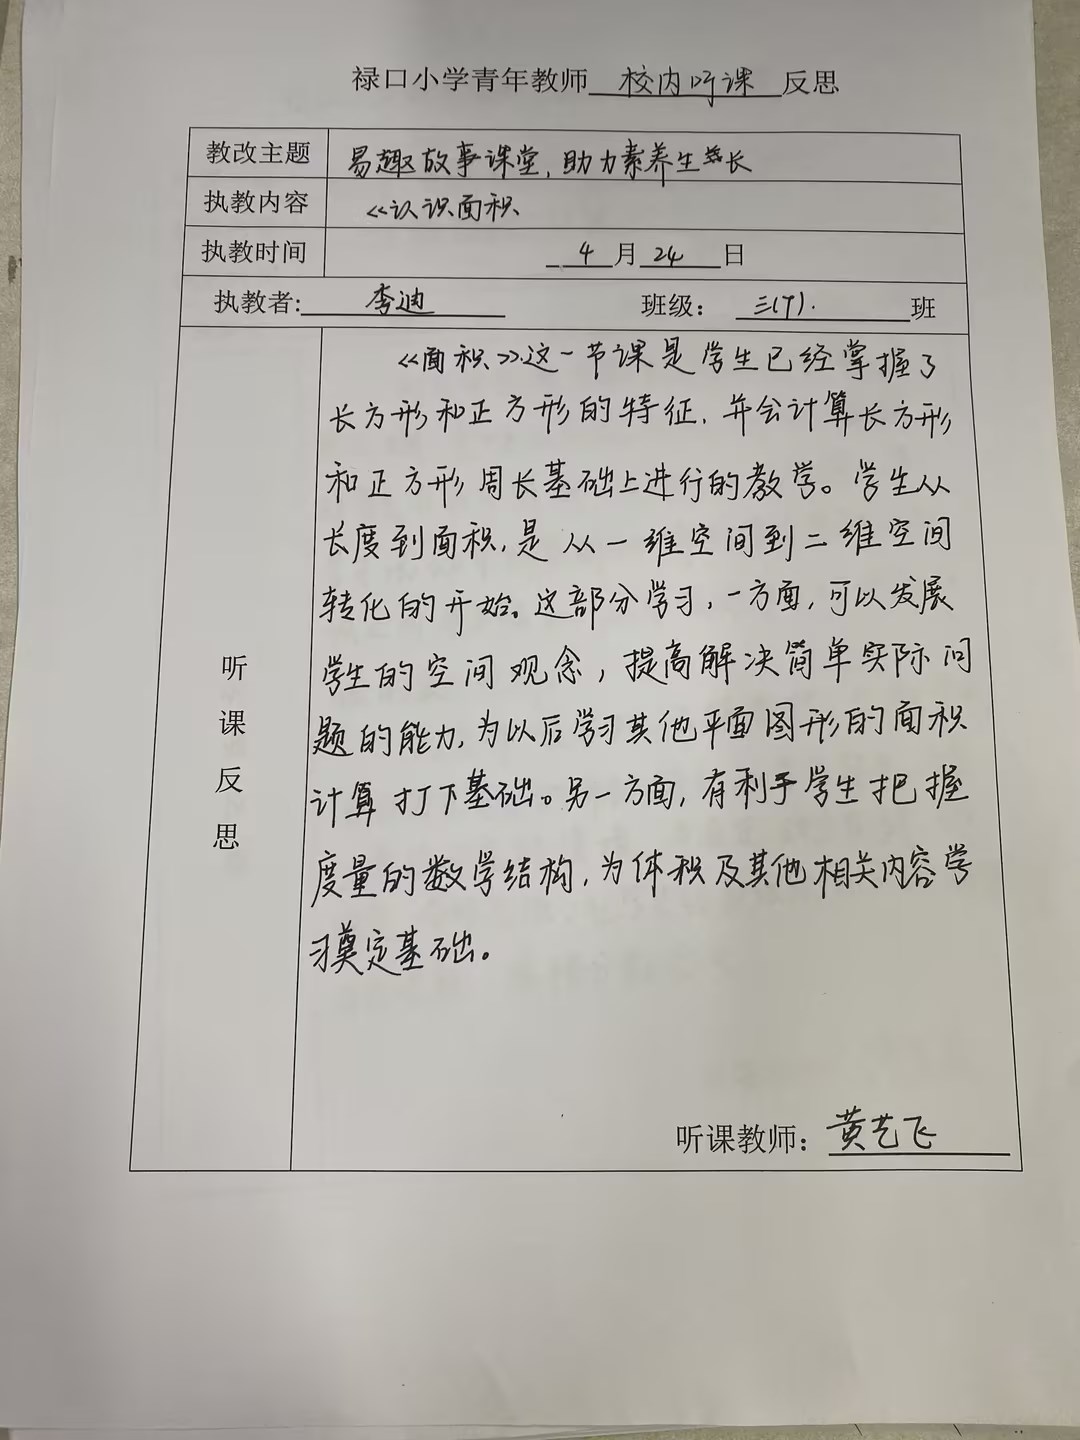 禄口小学青年教师 校内听课 反思
教改主题 易趣故事课堂，助力素养生长
执教内容 《认识面积
执教时间 4月24日
执教者: 李迪 班级： 三(7). 班
听课反思
《面积》这一节课是学生已经掌握了
长方形和正方形的特征，并会计算长方形
和正方形周长基础上进行的教学。学生从
长度到面积，是从一维空间到二维空间
转化的开始。这部分学习，一方面，可以发展
学生的空间观念，提高解决简单实际问
题的能力，为以后学习其他平面图形的面积
计算打下基础。另一方面，有利于学生把握
度量的数学结构，为体积及其他相关内容学
习奠定基础。
听课教师： 黄艺飞